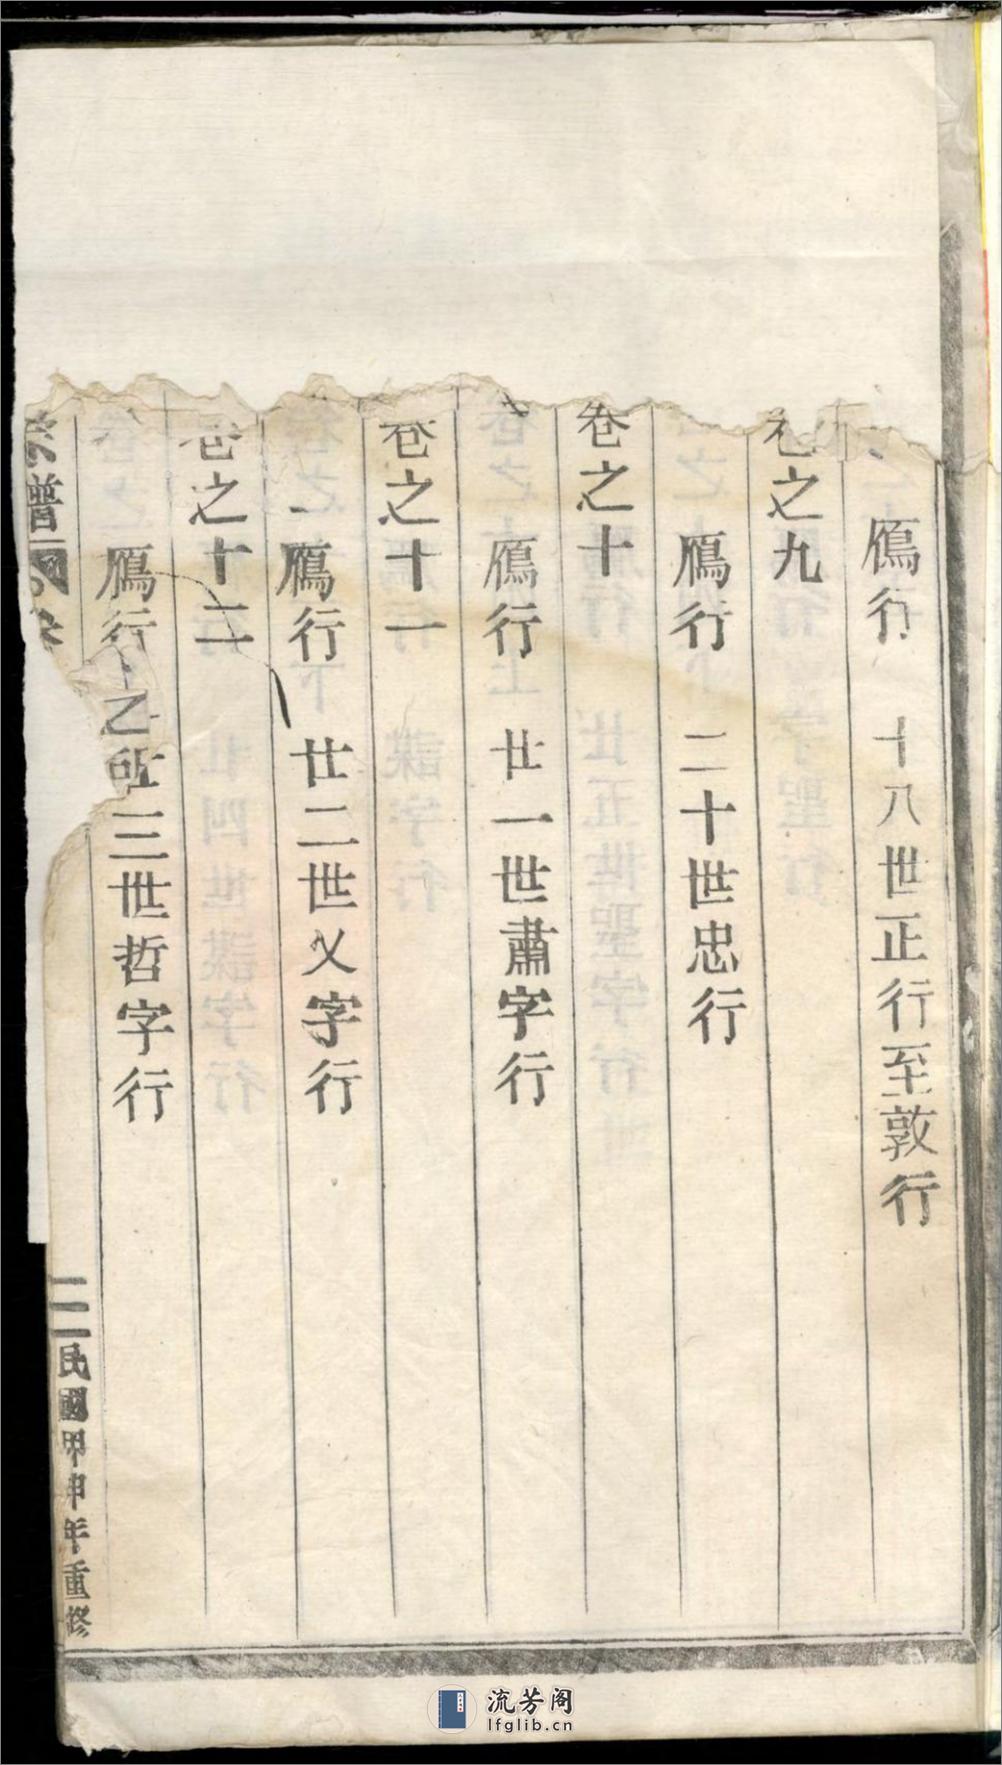 鴈行 十八世正行至敦行
卷之九
鴈行 二十世忠行
卷之十
鴈行 廿一世肅字行
卷之十一
鴈行 廿二世乂字行
卷之十二
鴈行 三世哲字行
宗譜
二
民國甲申年重修
流芳阁
lfglib.cn